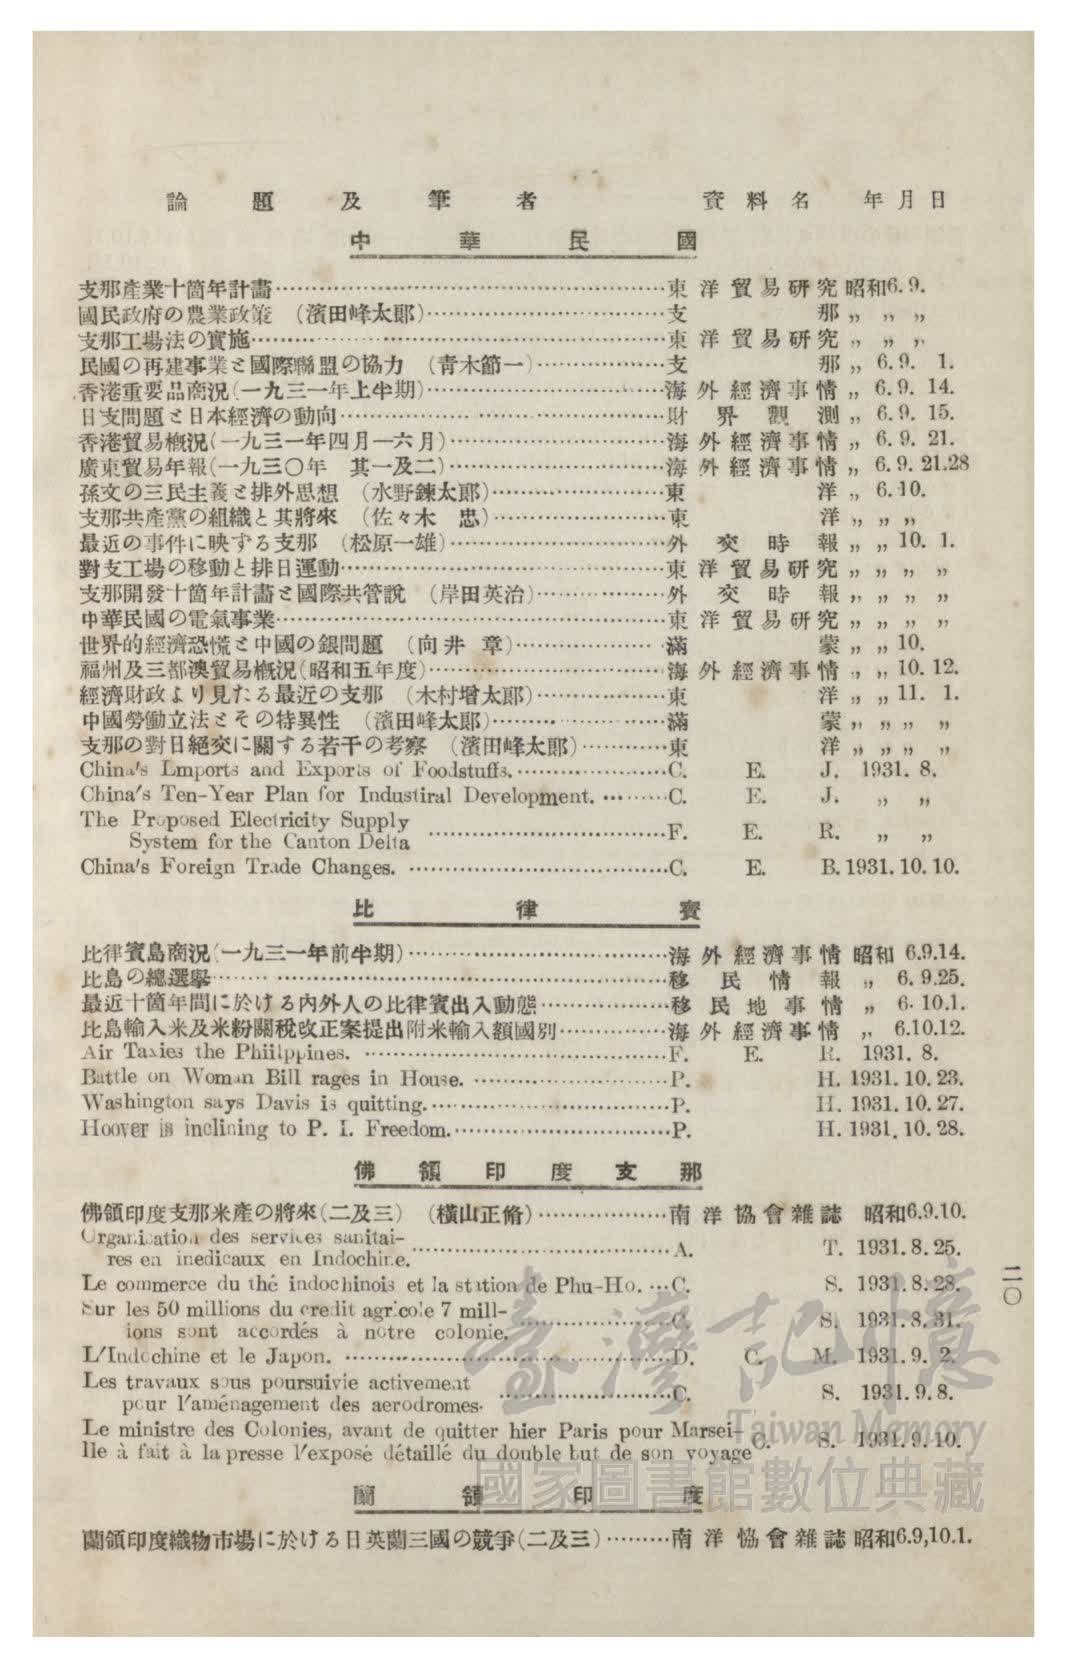 論題及筆者 資料名 年月日
中華民國
支那產業十箇年計畫……東洋貿易研究 昭和6.9.
國民政府の農業政策 (濱田峰太郎)……支那 〃 〃 〃
支那工場法の實施……東洋貿易研究 〃 〃 〃
民國の再建事業と國際聯盟の協力 (靑木節一)……支那 〃 6.9. 1.
香港重要品商況(一九三一年上半期)……海外經濟事情 〃 6.9. 14.
日支問題と日本經濟の動向……財界觀測 〃 6.9. 15.
香港貿易槪況(一九三一年四月—六月)……海外經濟事情 〃 6.9. 21.
廣東貿易年報(一九三〇年 其一及二)……海外經濟事情 〃 6.9.21.28
孫文の三民主義と排外思想 (水野鍊太郎)……東洋 〃 6.10.
支那共產黨の組織と其將來 (佐々木 忠)……東洋 〃 〃 〃
最近の事件に映ずる支那 (松原一雄)……外交時報 〃 〃 10. 1.
對支工場の移動と排日運動……東洋貿易研究 〃 〃 〃 〃
支那開發十箇年計畵と國際共管說 (岸田英治)……外交時報 〃 〃 〃 〃
中華民國の電氣事業……東洋貿易研究 〃 〃 〃 〃
世界的經濟恐慌と中國の銀問題 (向井 章)……滿蒙 〃 〃 10.
福州及三都澳貿易槪況(昭和五年度)……海外經濟事情 〃 〃 10. 12.
經濟財政より見たる最近の支那 (木村增太郎)……東洋 〃 〃 11. 1.
中國勞働立法とその特異性 (濱田峰太郎)……滿蒙 〃 〃 〃 〃
支那の對日絕交に關する若干の考察 (濱田峰太郎)……東洋 〃 〃 〃 〃
China's Lmports and Exports of Foodstuffs.……C. E. J. 1931. 8.
China's Ten-Year Plan for Industiral Development.……C. E. J. 〃 〃
The Proposed Electricity Supply
System for the Canton Delta ……F. E. R. 〃 〃
China's Foreign Trade Changes. ……C. E. B. 1931. 10. 10.
比律賓
比律賓島商況(一九三一年前半期)……海外經濟事情 昭和 6.9.14.
比島の總選擧……移民情報 〃 6. 9.25.
最近十箇年間に於ける內外人の比律賓出入動態……移民地事情 〃 6. 10.1.
比島輸入米及米粉關稅改正案提出附米輸入額國別……海外經濟事情 〃 6.10.12.
Air Taxies the Phiilppines. ……F. E. R. 1931. 8.
Battle on Woman Bill rages in House. ……P. H. 1931. 10. 23.
Washington says Davis is quitting.……P. H. 1931. 10. 27.
Hoover is inclining to P. I. Freedom.……P. H. 1931. 10. 28.
佛領印度支那
佛領印度支那米產の將來(二及三) (橫山正脩)……南洋協會雜誌 昭和6.9.10.
Organisation des services sanitai-
res en inedicaux en Indochine.……A. T. 1931. 8. 25.
Le commerce du thé indochinois et la station de Phu-Ho. …C. S. 1931. 8. 28.
Sur les 50 millions du credit agricole 7 mill-
ions sont accordés à notre colonie.……C. S. 1931. 8. 31.
L'Indochine et le Japon. ……D. C. M. 1931. 9. 2.
Les travaux sous poursuivie activement
pour l'aménagement des aerodromes. ……C. S. 1931. 9. 8.
Le ministre des Colonies, avant de quitter hier Paris pour Marsei-
lle à fait à la presse l'exposé détaillé du double but de son voyage C. S. 1931. 9. 10.
蘭領印度
蘭領印度織物市場に於ける日英蘭三國の競爭(二及三)……南洋協會雜誌 昭和6.9,10.1.
二〇
臺灣記憶
Taiwan Memory
國家圖書館數位典藏